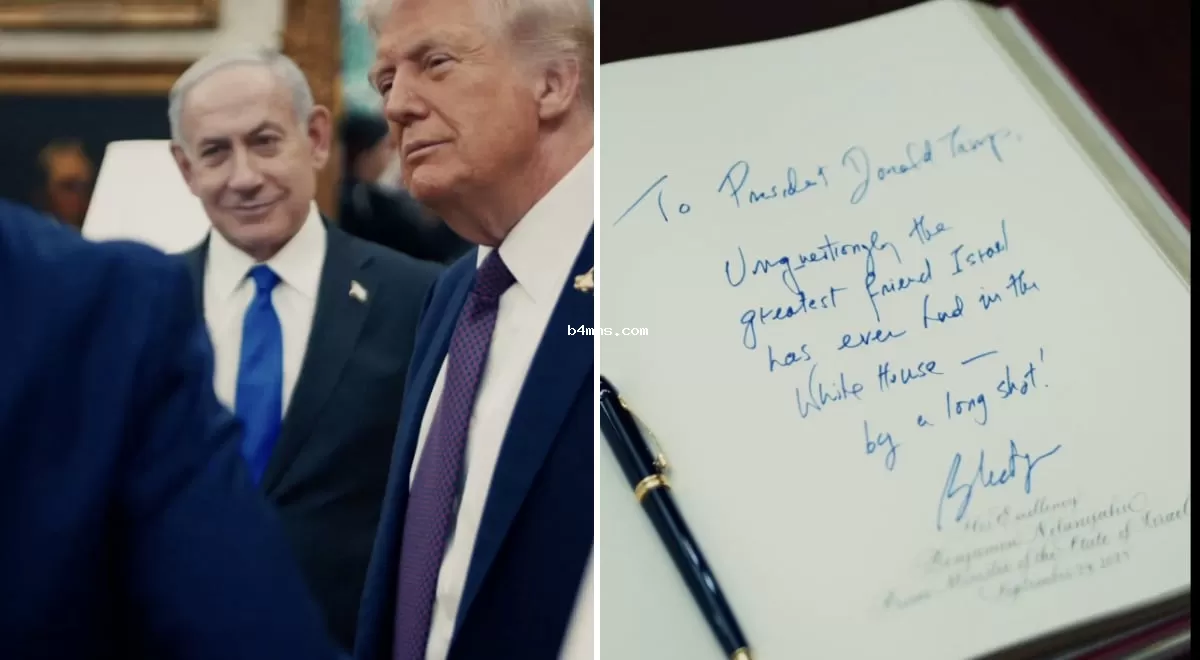 b4mns.com
To President Donald Trump,
Unquestionably the
greatest friend Israel
has ever had in the
White House —
by a long shot!
His Excellency
Benjamin Netanyahu
Prime Minister of the State of Israel
September 29, 2025